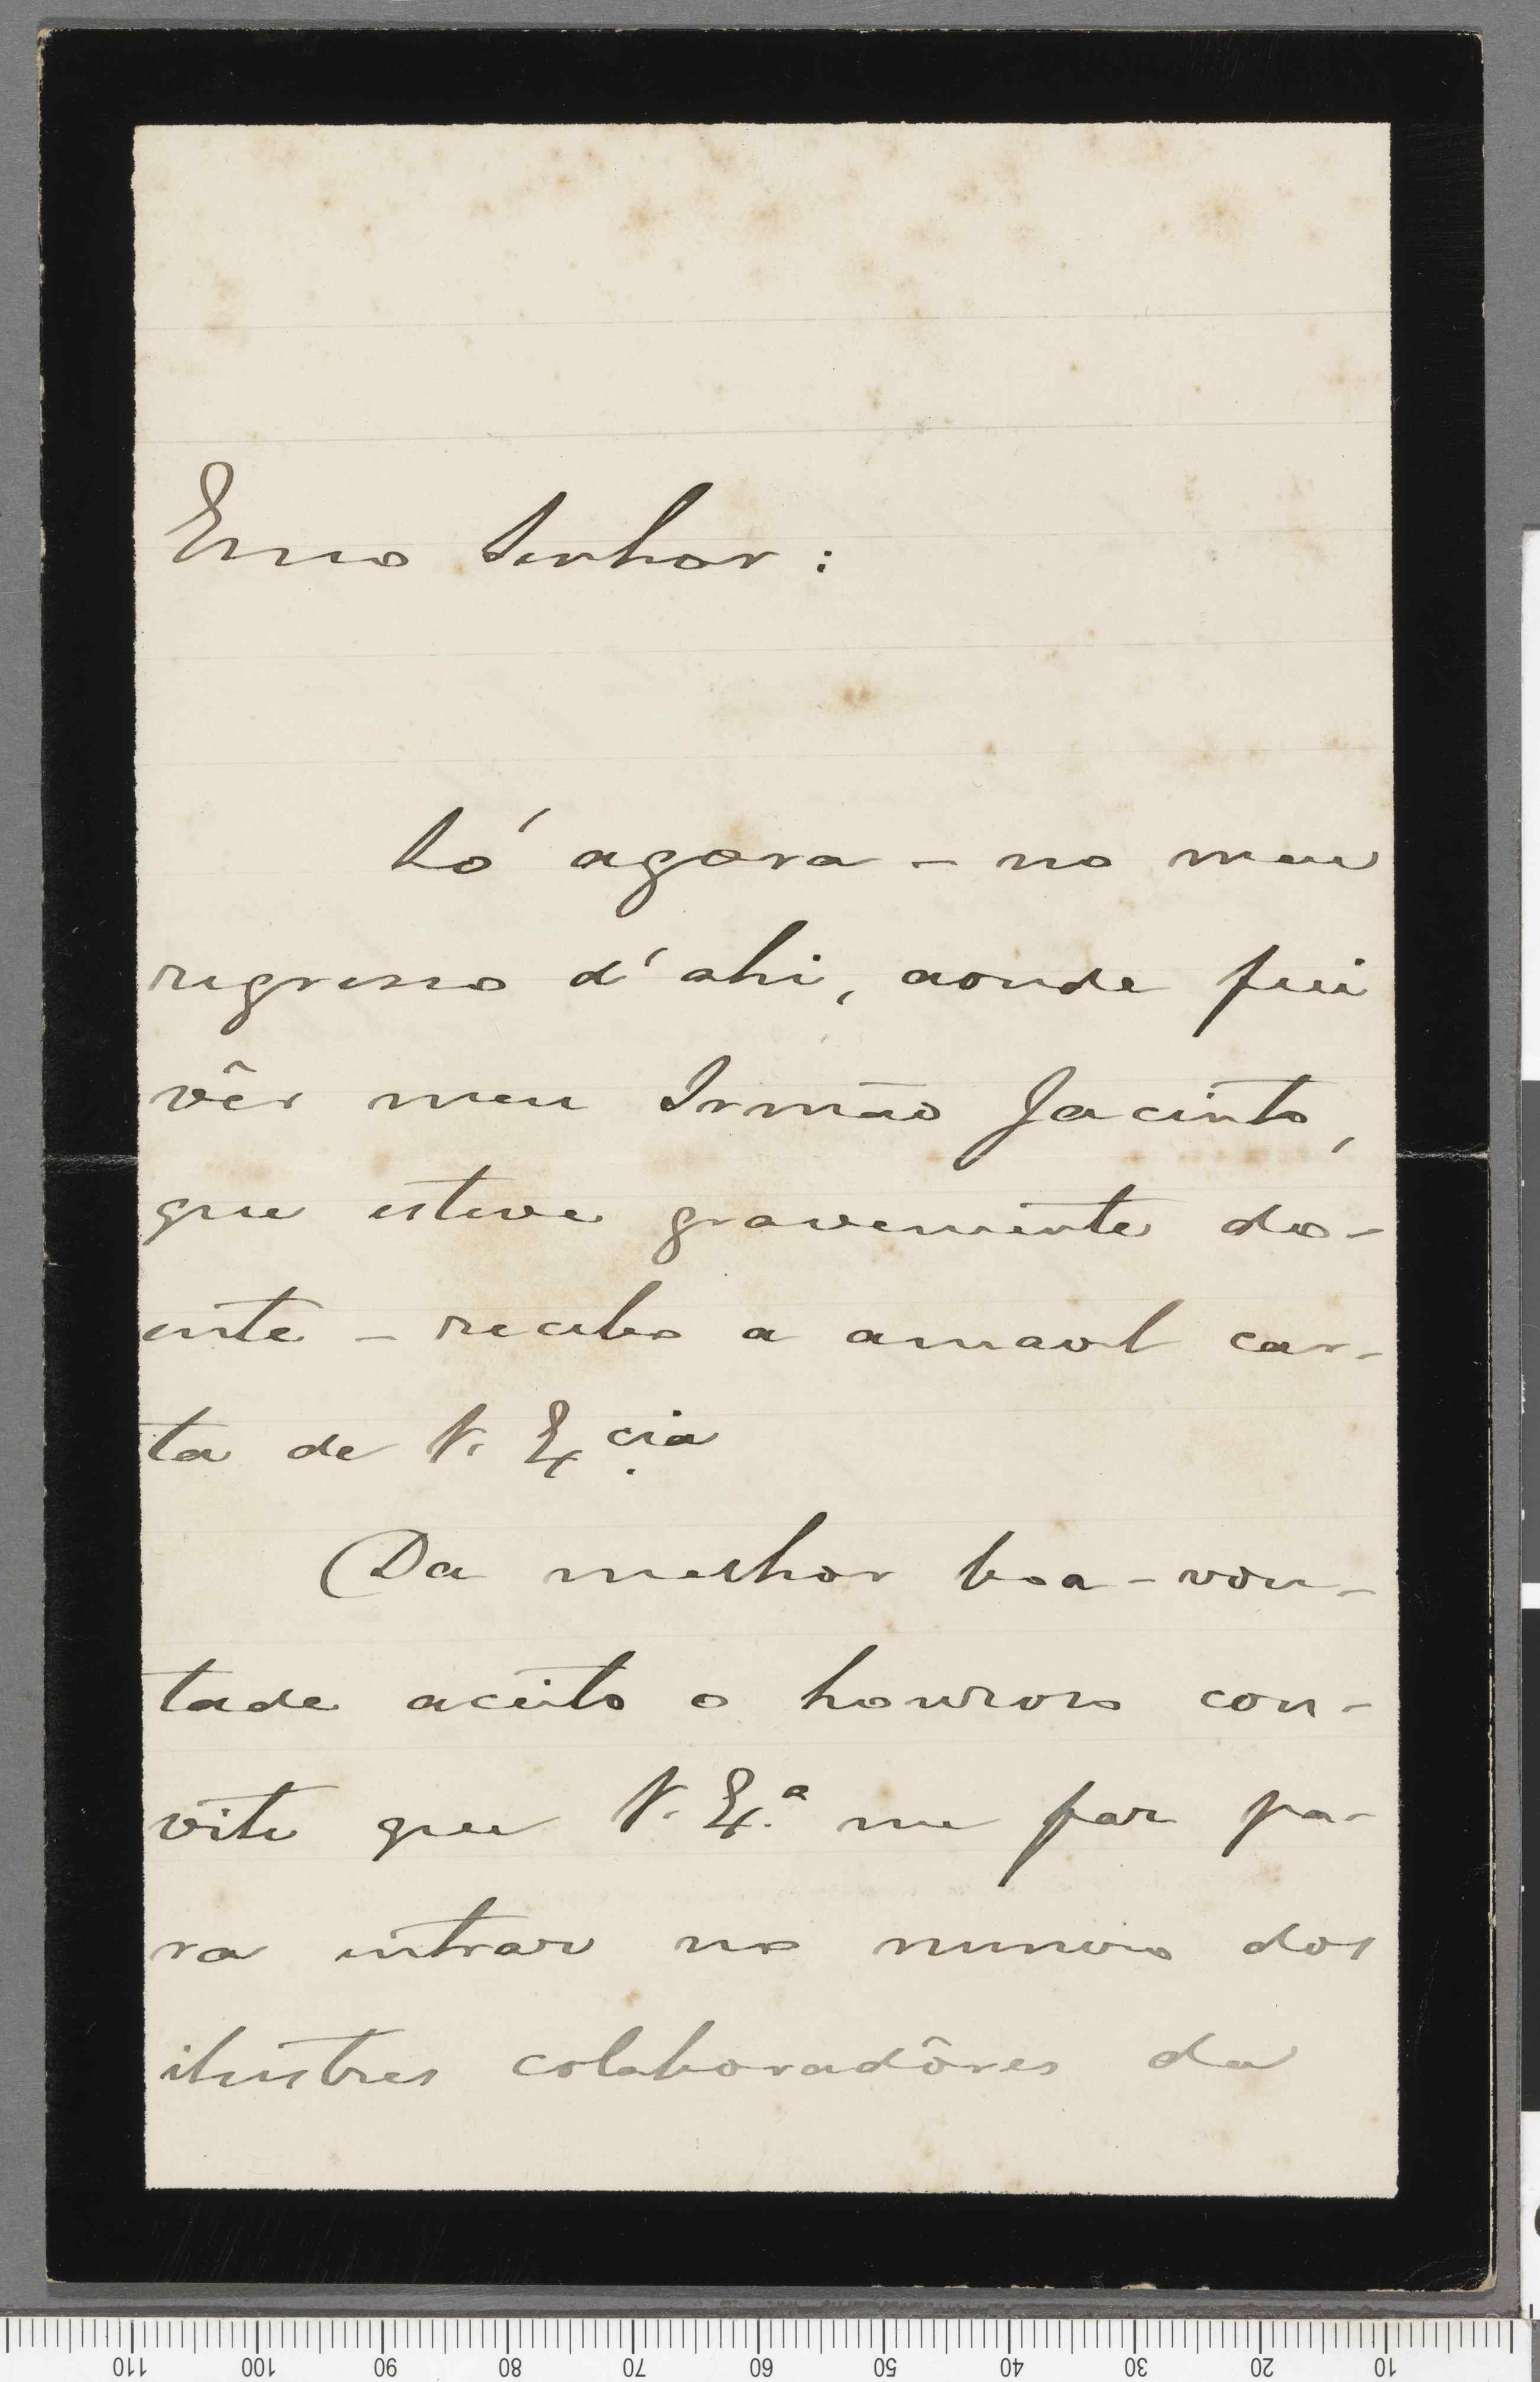 Exmo Senhor:
Só agora - no meu
regresso d'ahi, aonde fui
vêr meu Irmão Jacinto,
que esteve gravemente do-
ente - recebo a amavel car-
ta de V. Excia.
Da melhor boa-von-
tade aceito o honroso con-
vite que V. Ex.ª me faz pa-
ra entrar no numero dos
ilustres colaboradôres da
110 100 90 80 70 60 50 40 30 20 10